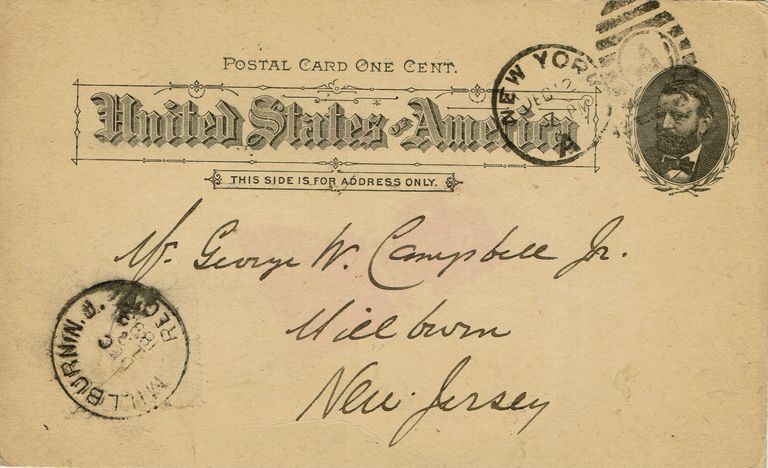 POSTAL CARD ONE CENT.
United States of America
THIS SIDE IS FOR ADDRESS ONLY.
NEW YORK
DEC
A
Mr. George W. Campbell Jr.
Millburn
New Jersey
MILLBURN N.J.
REC'D